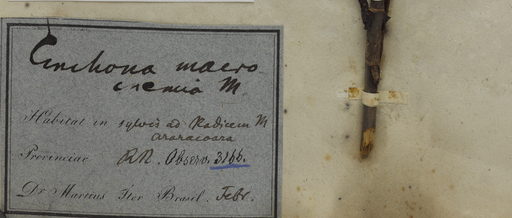 Cinchona macro
cnemia M.
Habitat in sylvis ad Radicem M
Araracoara
Provinciae RN. Observ. 3166.
Dr Martius Iter Brasil. Febr.